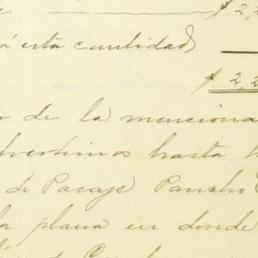 $ 2,2
á esta cantidad
$ 2,2
de la menciona
advertimos hasta
de Pasaje Pancho
la plaua en donde